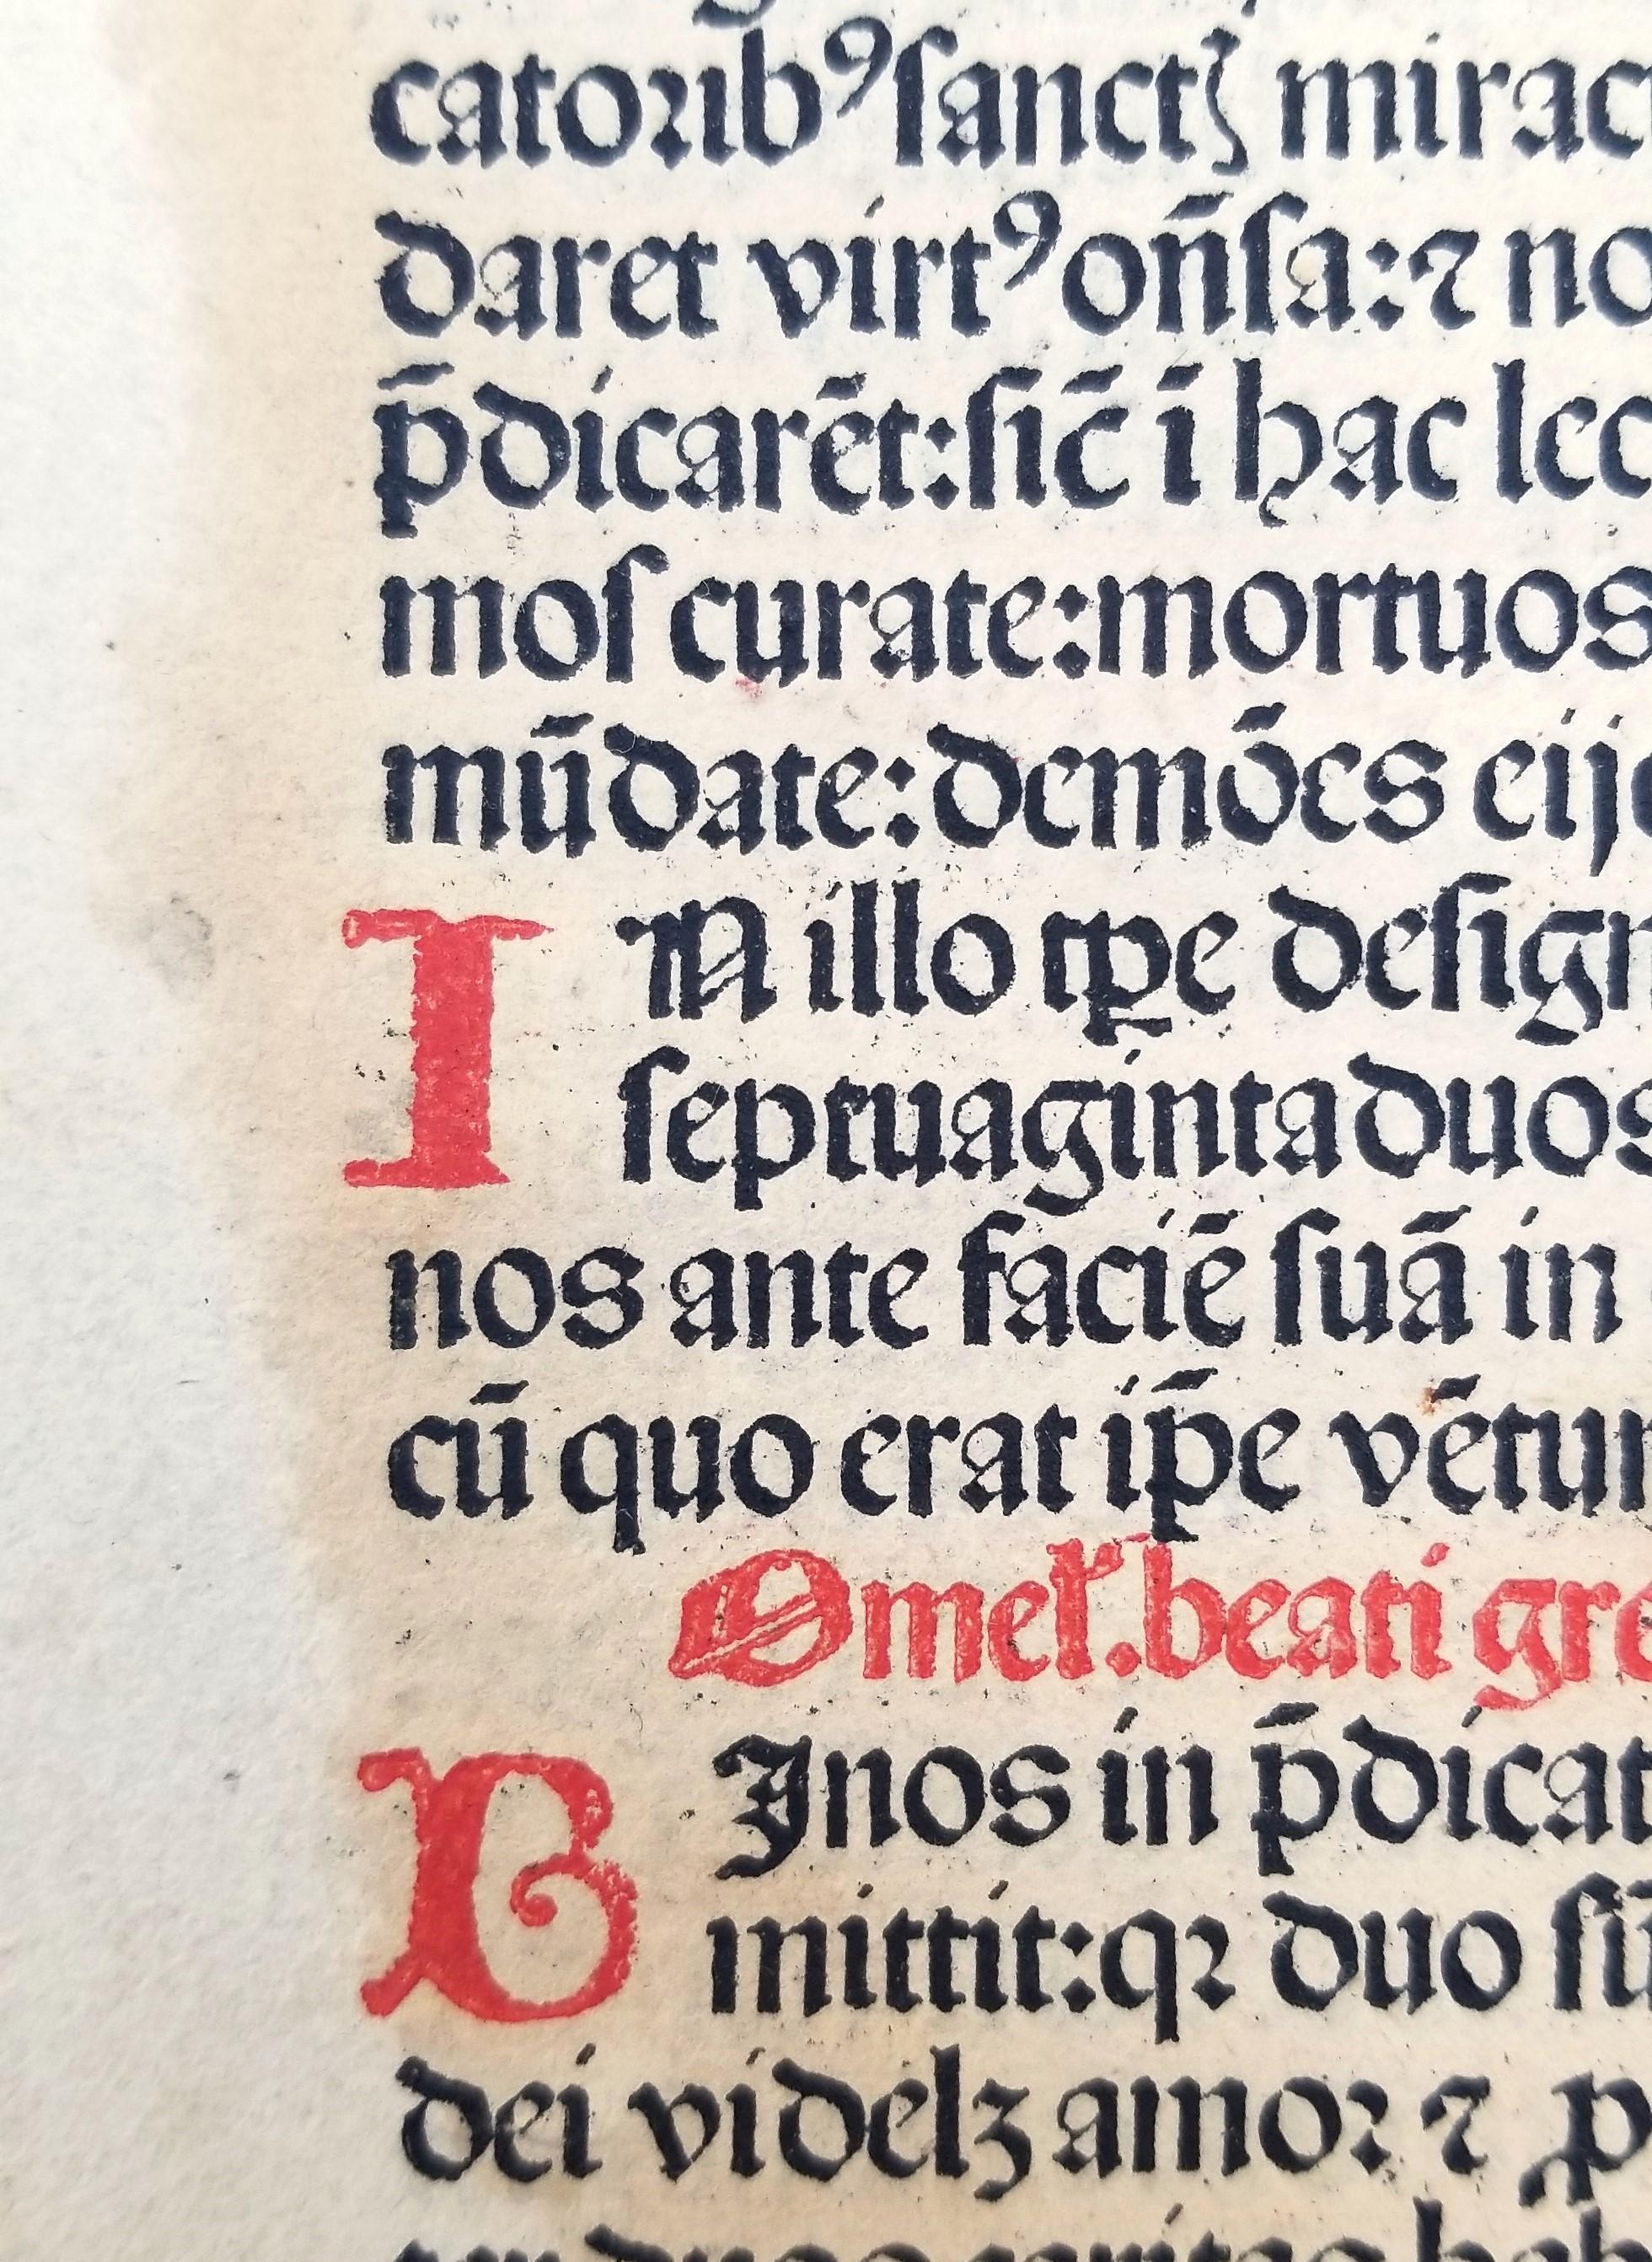 catoꝛibꝰ ſanctꝫ mirac
daret virtꝰ on̄ſa: ⁊ no
p̄dicarēt: ſic̄ ī hac lec
moſ curate: mortuos
mūdate: demōes eije
IN illo tꝑe deſign
ſeptuaginta duos
nos ante faciē ſuā in
cū quo erat ip̄e vētur
Omeł. beati gre
BInos in p̄dicat
mittit: qꝛ duo ſū
dei videlꝫ amoꝛ ⁊ ꝓ